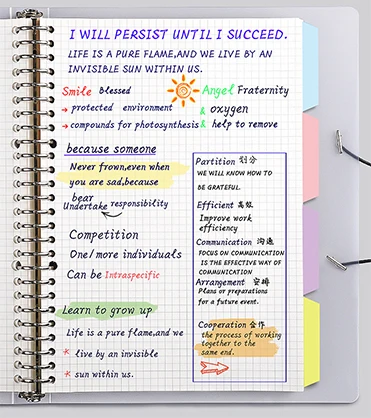 I WILL PERSIST UNTIL I SUCCEED.
LIFE IS A PURE FLAME,AND WE LIVE BY AN
INVISIBLE SUN WITHIN US.
Smile Blessed
→ protected environment
→ compounds for photosynthesis
Angel Fraternity
& oxygen
& help to remove
because someone
Never frown,even when
you are sad,because
bear
Undertake responsibility
Competition
One/more individuals
Can be Intraspecific
Learn to grow up
Life is a pure flame,and we
* live by an invisible
* sun within us.
Partition 划分
WE WILL KNOW HOW TO
BE GRATEFUL.
Efficient 高效
Improve work
efficiency
Communication 沟通
FOCUS ON COMMUNICATION
IS THE EFFECTIVE WAY OF
COMMUNICATION
Arrangement 安排
Plans or preparations
for a future event.
Cooperation 合作
the process of working
together to the
same end.